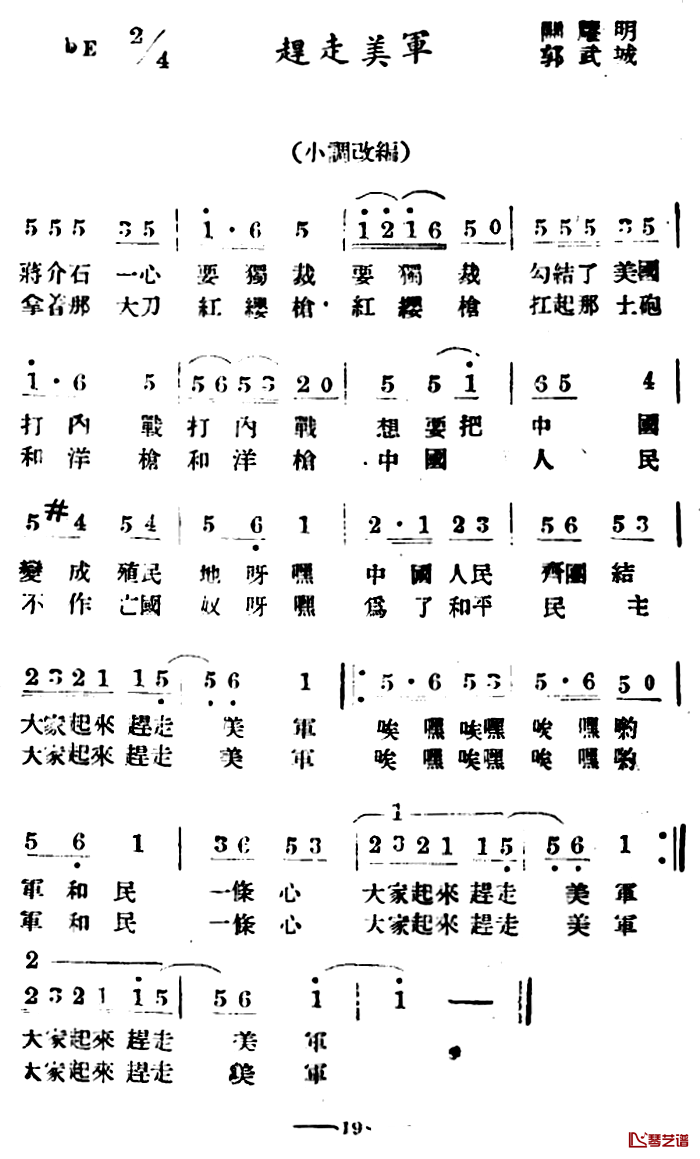 bE 2/4 趕走美軍 關耀明
郭武城
(小調改編)
5 5 5 3 5 | 1 · 6 5 | 1 2 1 6 5 0 | 5 5 5 3 5 |
蔣介石一心 要獨裁 要獨裁 勾結了美國
拿着那大刀 紅纓槍 紅纓槍 扛起那土砲
1 · 6 5 | 5 6 5 3 2 0 | 5 5 1 | 6 5 4 |
打內戰 打內戰 想要把 中國
和洋槍 和洋槍 中國 人民
5 #4 5 4 | 5 6 1 | 2 · 1 2 3 | 5 6 5 3 |
變成殖民 地呀嘿 中國人民 齊團結
不作亡國 奴呀嘿 爲了和平 民主
2 3 2 1 1 5 | 5 6 1 |: 5 · 6 5 3 | 5 · 6 5 0 |
大家起來趕走 美軍 唉嘿唉嘿 唉嘿喲
大家起來趕走 美軍 唉嘿唉嘿 唉嘿喲
1
5 6 1 | 3 6 5 3 | 2 3 2 1 1 5 | 5 6 1 :|
軍和民 一條心 大家起來趕走 美軍
軍和民 一條心 大家起來趕走 美軍
2
2 3 2 1 1 5 | 5 6 1 | 1 — ||
大家起來趕走 美軍
大家起來趕走 美軍
—19·
琴艺谱